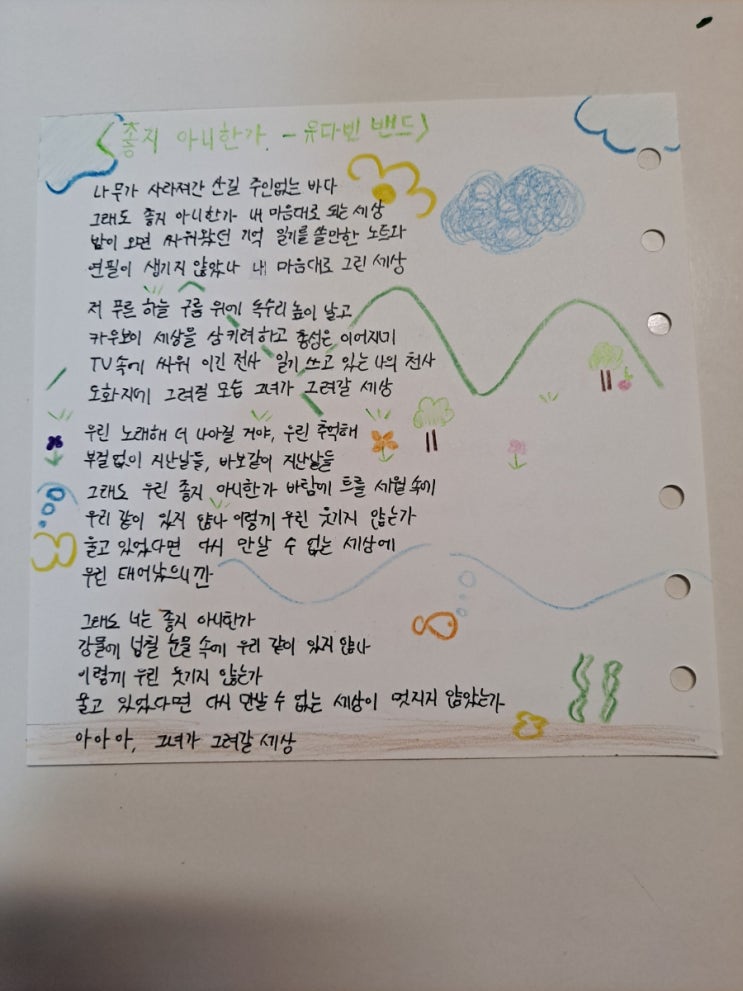 <좋지 아니한가 - 유다빈 밴드>
나무가 사라져간 산길 주인없는 바다
그래도 좋지 아니한가 내 마음대로 되는 세상
밤이 오면 싸워왔던 기억 일기를 쓸만한 노트와
연필이 생기지 않았나 내 마음대로 그린 세상
저 푸른 하늘 구름 위에 독수리 높이 날고
카우보이 세상을 삼키려하고 총성은 이어지기
TV 속에 싸워 이긴 전사 일기 쓰고 있는 나의 천사
도화지에 그려질 모습 그녀가 그려갈 세상
우린 노래해 더 나아질 거야, 우린 추억해
부질없이 지난날들, 바보같이 지난날들
그래도 우린 좋지 아니한가 바람에 흐를 세월 속에
우리 같이 있지 않나 이렇게 우린 웃기지 않는가
울고 있었다면 다시 만날 수 없는 세상에
우린 태어났으니깐
그래도 너는 좋지 아니한가
강물에 넘칠 눈물 속에 우리 같이 있지 않나
이렇게 우린 웃기지 않는가
울고 있었다면 다시 만날 수 없는 세상이 멋지지 않았는가
아아아, 그녀가 그려갈 세상